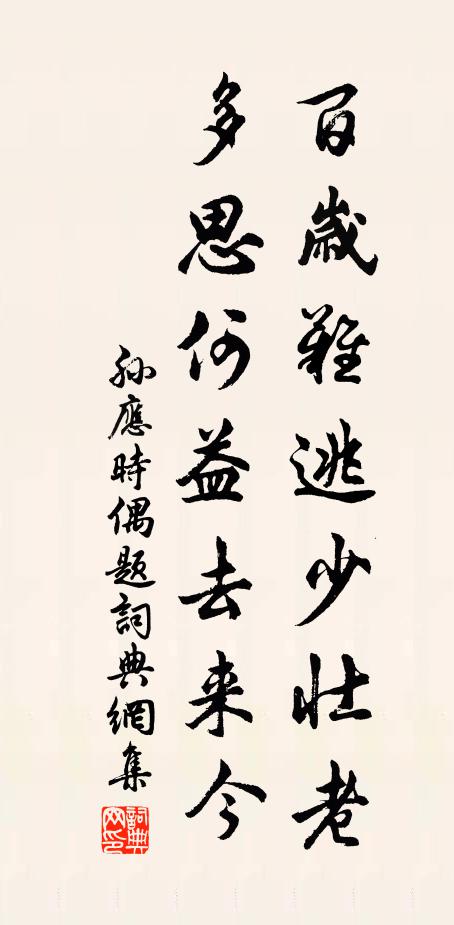 百歲難逃少壯老
多思何益去来今
孫應時偶題詞典網集
詞典
网印